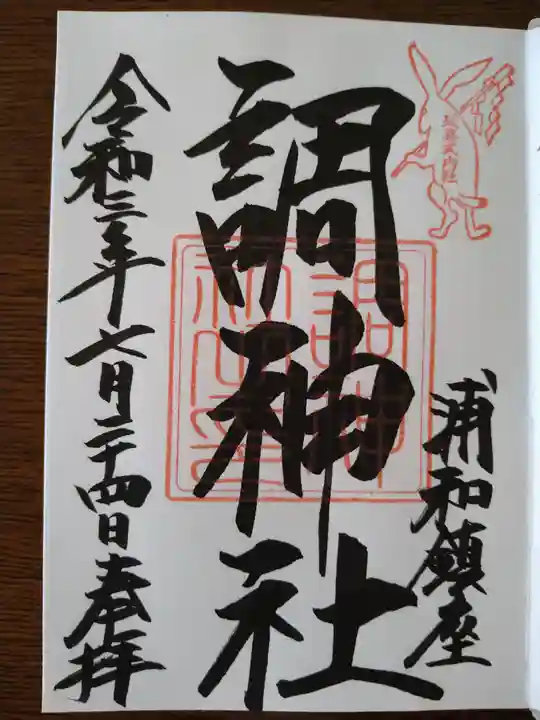 浦和鎮座
調神社
令和三年七月二十四日奉拝